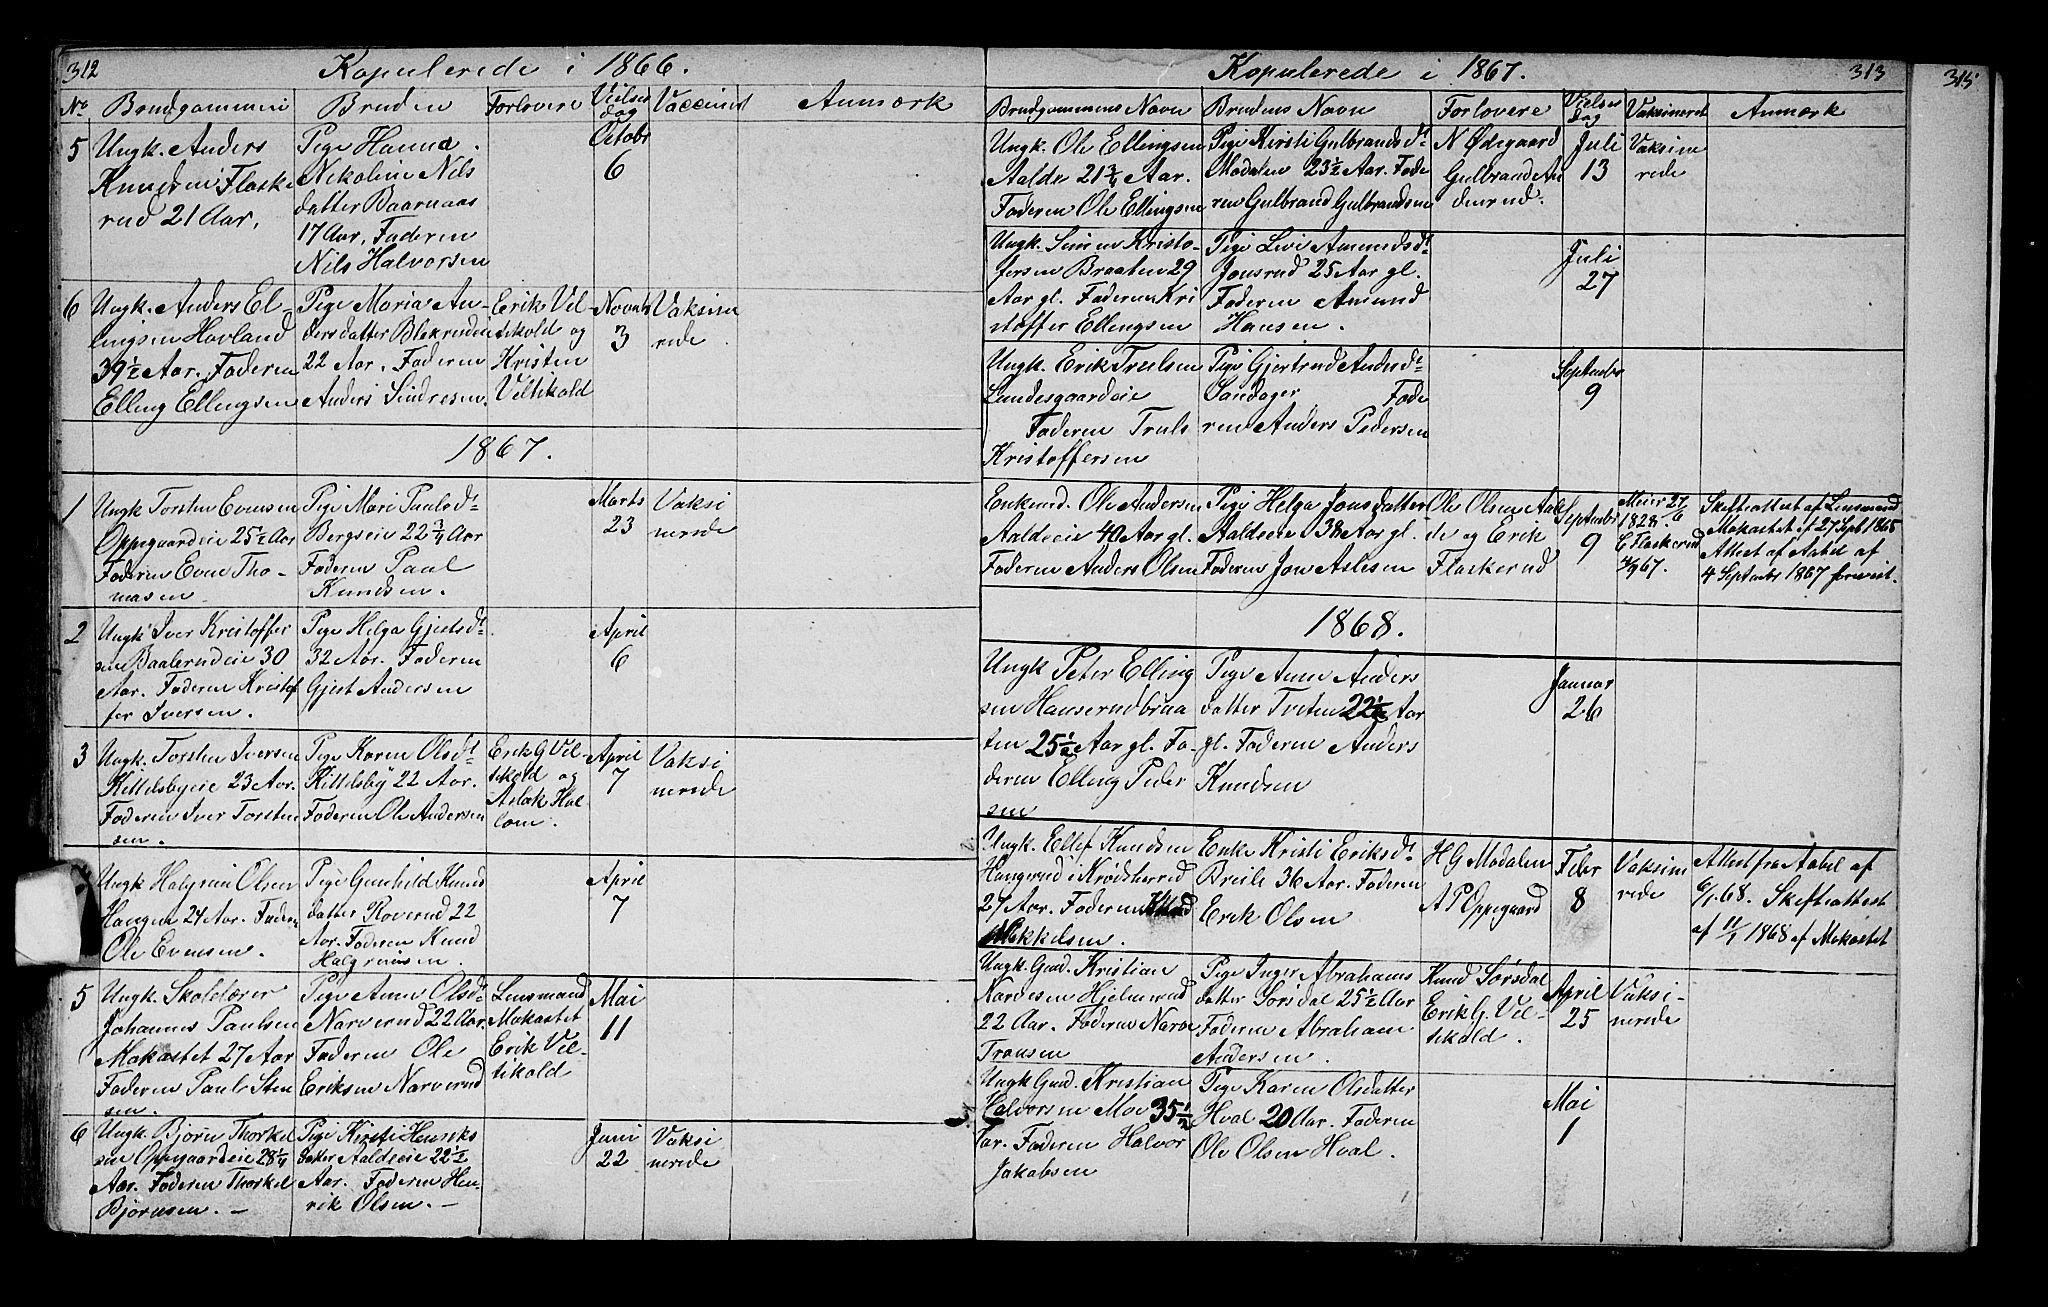 312
Kopulerede i 1866.
No. Brudgommen Bruden Forlovere Vielses dag Vaccineret Anmærk
5
Ungk. Anders
Knudsen Flaske
rud 21 Aar.
Pige Hanna
Nikoline Nils
datter Baarnaas
17 Aar. Faderen
Nils Halvorsen
Octobr
6
6
Ungk. Anders El-
lingsen Hovland
39½ Aar. Faderen
Elling Ellingsen
Pige Maria An-
dersdatter Blekruden
22 Aar. Faderen
Anders Sindresen.
Erik Vel-
tikold og
Kristen
Veltikold
Novmb
3
Vaksine
rede
1867.
1
Ungk Torsten Evensen
Oppegaardeie 25½ Aar
Faderen Even Tho-
masen
Pige Mari Paalsdt
Bergseie 22¾ Aar
Faderen Paal
Knudsen.
Marts
23
Vaksi
nerede
2
Ungk Iver Kristoffer
sen Baalerudeie 30
Aar. Faderen Kristof
fer Iversen.
Pige Helga Gjestsdt.
32 Aar. Faderen
Gjest Andersen
April
6
3
Ungk. Torsten Iversen
Kittelsbyeie 23 Aar.
Faderen Iver Torsten
sen.
Pige Karen Olsdt
Kittelsby 22 Aar.
Faderen Ole Andersen
Erik G Vel-
tikold og
Aslak Hal-
lom.
April
7
Vaksi
nerede
Ungk Halgrim Olsen
Haugen 24 Aar. Faderen
Ole Evensen.
Pige Gunhild Knud
datter Roverud 22
Aar. Faderen Knud
Halgrimsen.
April
7
5
Ungk. Skolelærer
Johannes Paulsen
Mokastet 27 Aar
Faderen Paul Sten
sen.
Pige Anne Olsdt
Narverud 22 Aar.
Faderen Ole
Eriksen Narverud
Lensmand
Mokastet
Erik Vel-
tikold
Mai
11
6
Ungk. Bjørn Thorkel
sen Oppegaardeie 28¼
Aar. Faderen Thorkel
Bjørnsen. –
Pige Kirsti Henriks
datter Aaldeeie 22½
Aar. Faderen Hen-
rik Olsen. –
Juni
22
Vaksi
nerede
Kopulerede i 1867.
313
315
Brudgommens Navn Brudens Navn Forlovere Vielses dag Vaksineret Anmærk
Ungk. Ole Ellingsen
Aalde 21¾ Aar.
Faderen Ole Ellingsen
Pige Kirsti Gulbrandsdt
Modalen 23½ Aar. Fade
ren Gulbrand Gulbrandsen
N Ødegaard
Gulbrand An
denrud.
Juli
13
Vaksine
rede
Ungk. Simen Kristo-
fersen Braaten 29
Aar gl. Faderen Kri
stoffer Ellingsen
Pige Livi Amundsdt
Jonsrud 25 Aar gl.
Faderen Amund
Hansen.
Juli
27
Ungk. Erik Trulsen
Lundesgaardeie
Faderen Truls
Kristoffersen
Pige Gjertrud Andersdt
Sandager Fade
ren Anders Pedersen
Septmbr
9
Enkemd. Ole Andersen
Aaldeeie 40 Aar gl.
Faderen Anders Olsen
Pige Helga Jonsdatter
Aaldeeie 38 Aar gl.
Faderen Jon Aslesen
Ole Olsen Aal
de og Erik
Flaskerud
Septmbr
9
Meier 27/6
1828.
E Flaskerud
4/9 67.
Skifteattest af Lensmand
Mokastet af 27 Sept 1865
Attest af Aabel af
4 Septmbr 1867 forevist.
1868.
Ungk Peter Elling
sen Hanserudbraa
ten 25½ Aar gl. Fa-
deren Elling Peder
sen
Pige Anne Anders
datter Triten 22½ Aar
gl. Faderen Anders
Knudsen
Januar
26
Ungk. Ellef Knudsen
Haugerud i Krødsherred
27 Aar. Faderen Knud
Mikkelsen.
Enke Kristi Eriksdt.
Breili 36 Aar. Faderen
Erik Olsen
H G Modalen
A P Oppegaard
Febr
8
Vaksine
rede
Attest fra Aabel af
6/1 68. Skifteattest
af 11/1 1868 af Mokastet
Ungk. Gmd. Kristian
Narvesen Hjelmerud
22 Aar. Faderen Narve
Tronsen
Pige Inger Abrahams
datter Sørsdal 25½ Aar
Faderen Abraham
Andersen.
Knud Sørsdal
Erik G. Vel-
tikold.
April
25
Vaksi-
nerede
Ungk Gmd. Kristian
Halvorsen Moe 35½
Aar. Faderen Halvor
Jakobsen
Pige Karen Olsdatter
Hval 20 Aar. Faderen
Ole Olsen Hval.
Mai
1